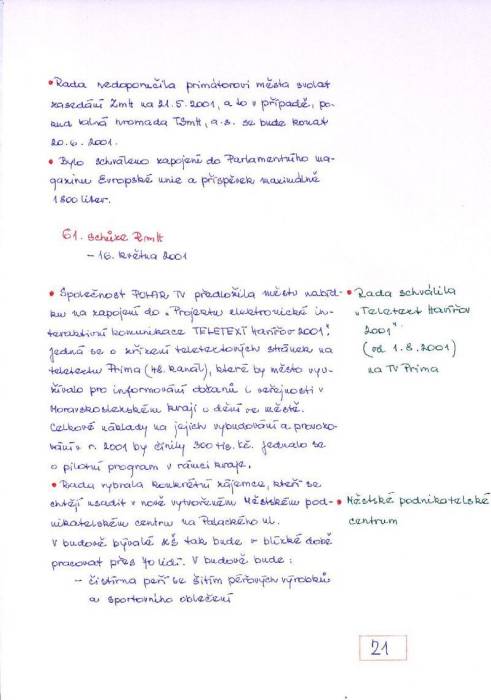 • Rada nedoporučila primátorovi města svolat
zasedání ZmH na 21.5.2001, a to v případě, po-
kud valná hromada TSmH, a.s. se bude konat
20.6.2001.
• Bylo schváleno zapojení do Parlamentního ma-
gazínu Evropské unie a příspěvek maximálně
1 800 liber.
61. schůze RmH
– 16. května 2001
• Společnost POLAR TV předložila městu nabíd-
ku na zapojení do „Projektu elektronické in-
teraktivní komunikace TELETEXT Havířov 2001".
Jedná se o zřízení teletextových stránek na
teletextu Prima (48. kanál), které by město vyu-
žívalo pro informování občanů i veřejnosti v
Moravskoslezském kraji o dění ve městě.
Celkové náklady na jejich vybudování a provozo-
vání v r. 2001 by činily 300 tis. Kč. Jednalo se
o pilotní program v rámci kraje.
• Rada schválila
„Teletext Havířov
2001"
(od 1.8.2001)
na TV Prima
• Rada vybrala konkrétní zájemce, kteří se
chtějí usadit v nově vytvořeném Městském pod-
nikatelském centru na Palackého ul.
V budově bývalé ZŠ tak bude v blízké době
pracovat přes 40 lidí. V budově bude:
– čistírna peří se šitím péřových výrobků
a sportovního oblečení
• Městské podnikatelské
centrum
21